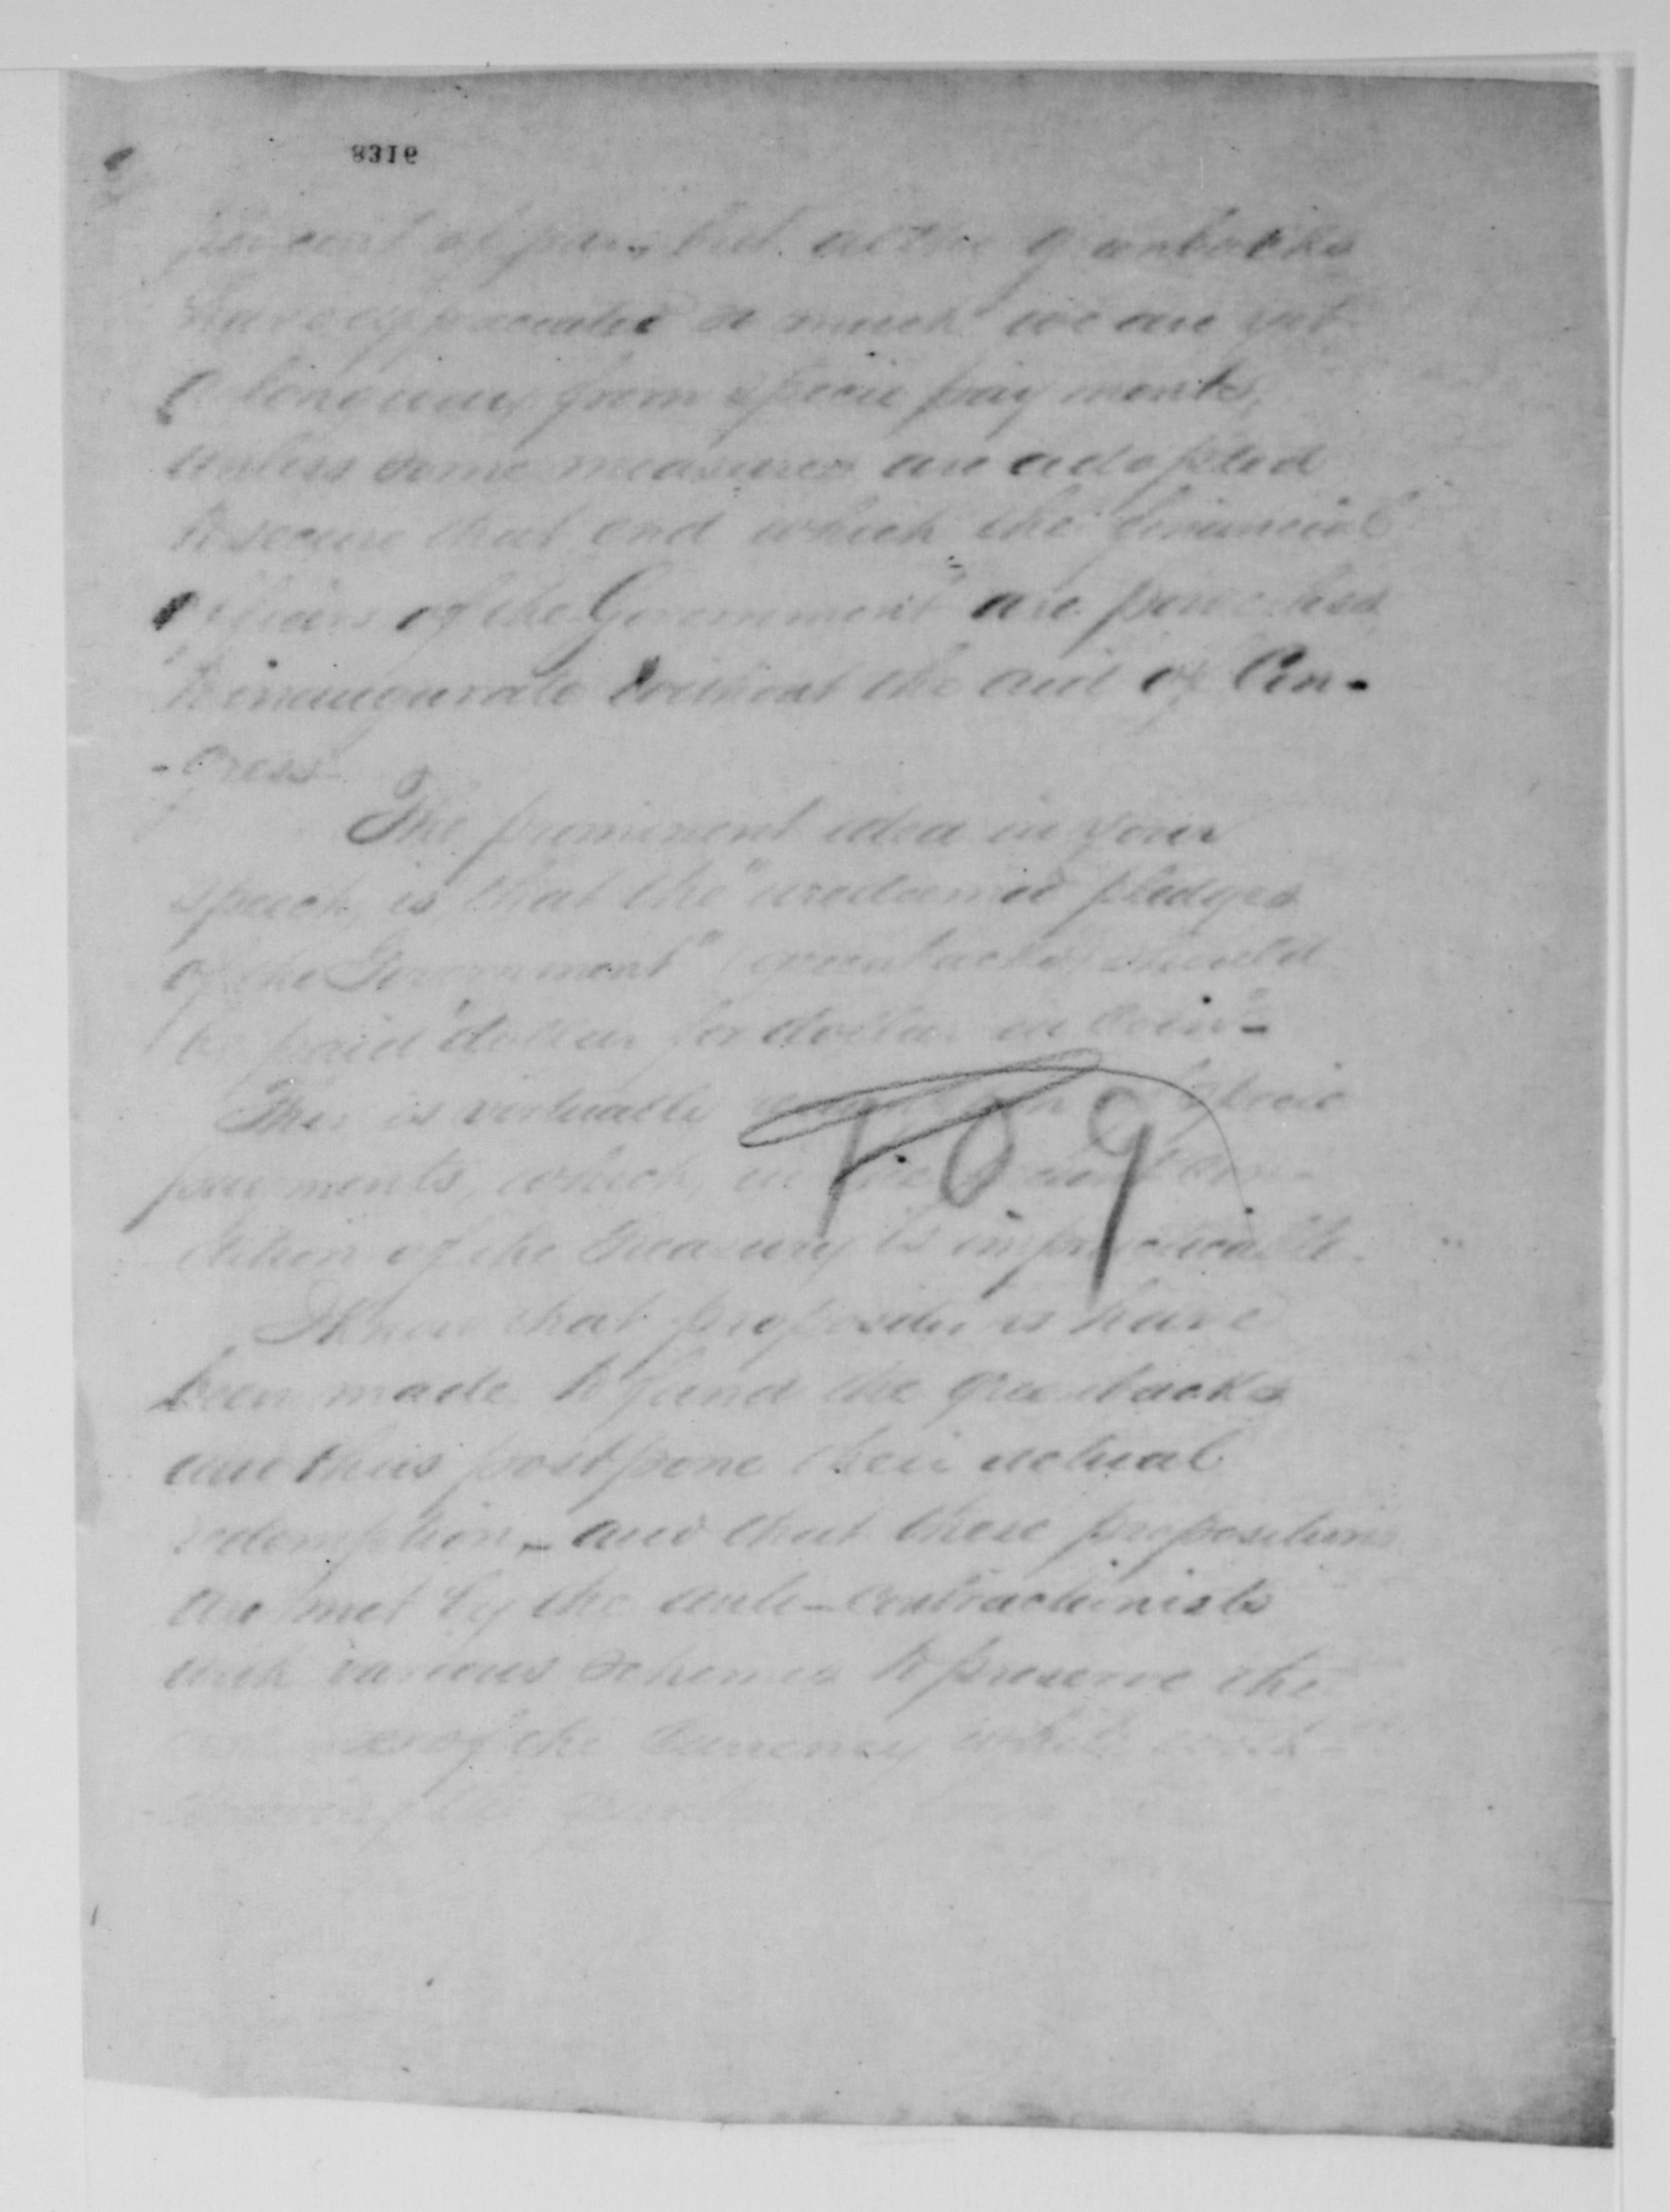 8316
per cent of par, but as the greenbacks
have appreciated so much we are yet
a long way from specie payments,
unless some measures are adopted
to secure that end which the financial
officers of the Government are powerless
to inaugurate without the aid of Con-
-gress.
The prominent idea in your
speech, is that the "unredeemed pledges
of the Government" (greenbacks) should
be paid "dollar for dollar in Coin"-
This is virtually specie
payments, which, in the con-
dition of the Treasury is impracticable.
T.O.9
I know that propositions have
been made to fund the greenbacks
and thus postpone their actual
redemption, - and that these propositions
are met by the anti-contractionists
with various schemes to preserve the
of the Currency while with-